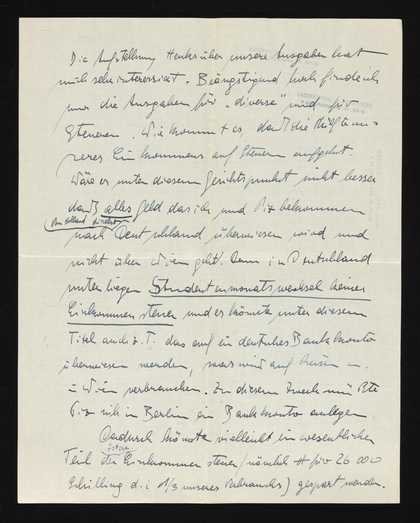 Die Aufstellung Henks über unsere Ausgaben hat
mich sehr interessiert. Beängstigend hoch finde ich
nur die Ausgaben für "diverse" und für
Steuern. Wie kommt es, daß die Hälfte un-
seres Einkommens auf Steuern aufgeht.
Wäre es unter diesem Gesichtspunkt nicht besser
daß alles Geld das ich und Piz bekommen
von Holland direkt
nach Deutschland überwiesen wird und
nicht über Wien geht. Denn in Deutschland
unterliegen Studentenmonatswechsel keiner
Einkommensteuer und es könnte unter diesem
Titel auch z.T. das auf ein deutsches Bankkonto
überwiesen werden, was wir auf Reisen u.
in Wien verbrauchen. Zu diesem Zweck müßte
Piz sich in Berlin ein Bankkonto anlegen.
Dadurch könnte vielleicht ein wesentlicher
Teil der Einkommensteuer (nämlich für 26 000
Schilling d.i. 1/3 unseres Verbrauchs) gespart werden.